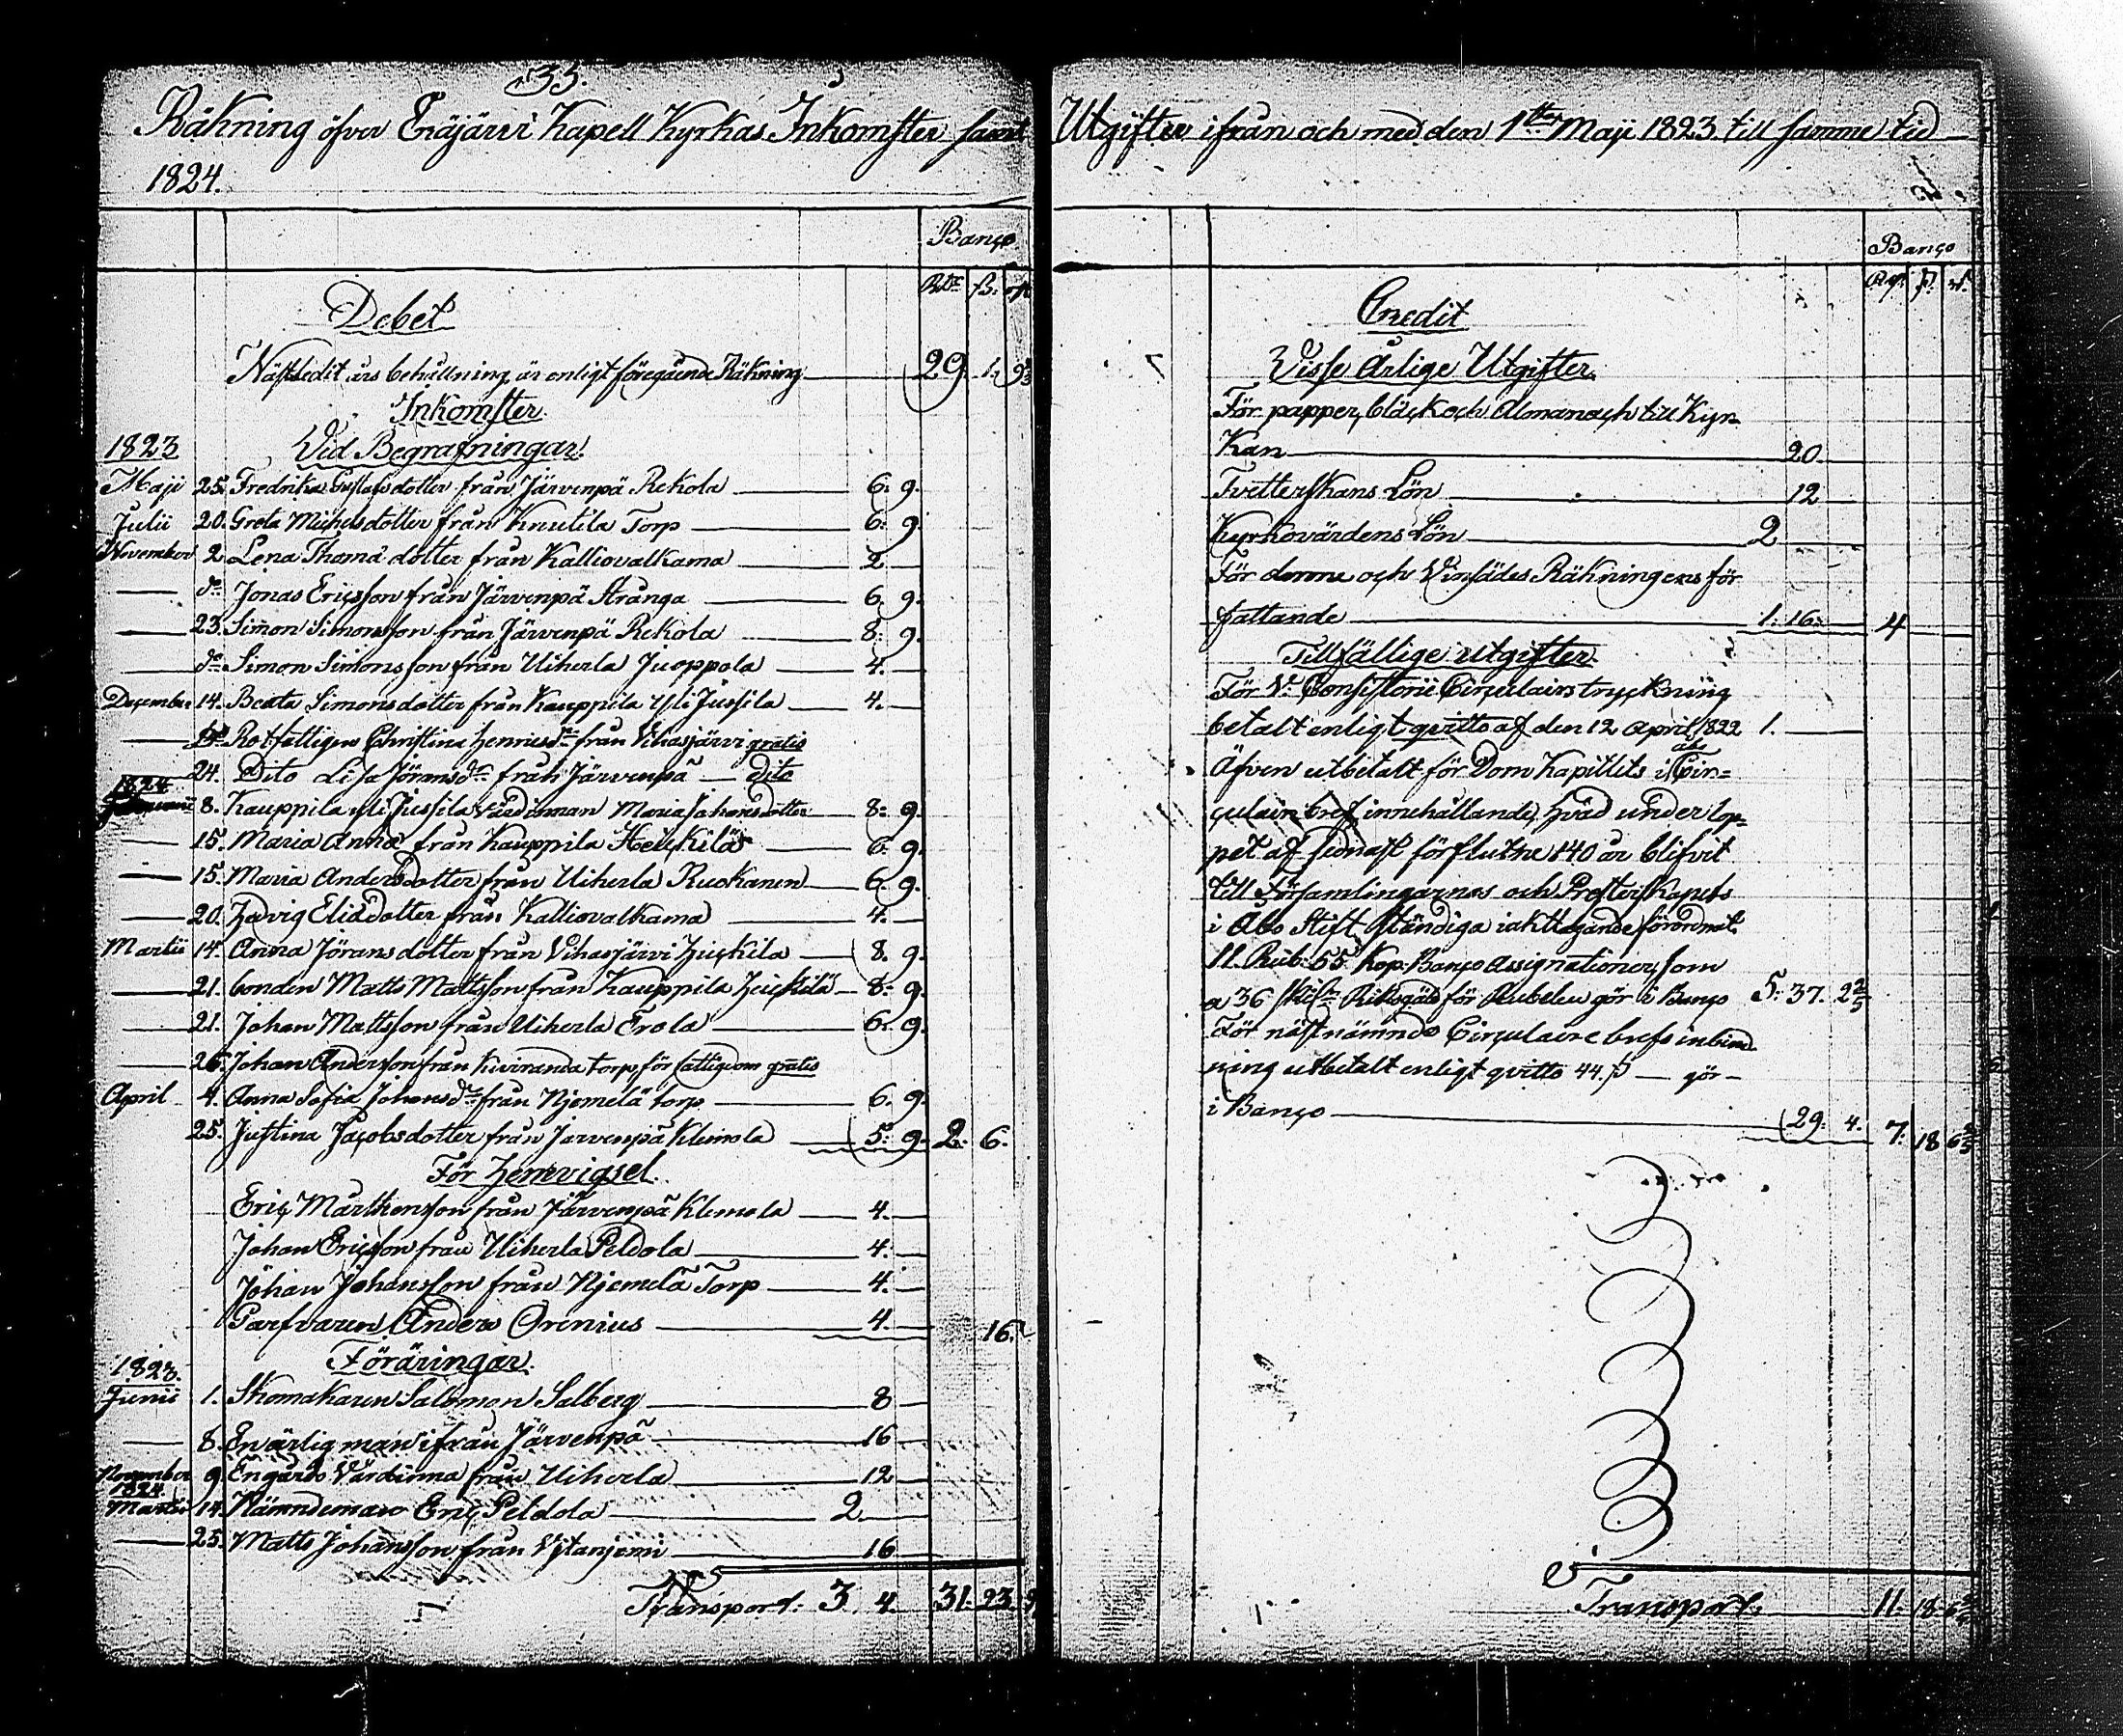 33.
Räkning öfver Enäjärvi Kapell Kyrkas Inkomster samt
1824.
Banço
Rdr ß. rst
Debet
Nästledit års behållning är enligt föregående Räkning 29. 1. 9
Inkomster.
1823 Vid Begrafningar.
Maji 25. Fredrika Gustafsdotter från Järvenpä Rekola 6. 9.
Julii 20. Greta Michelsdotter från Knutila Torp 6. 9.
November 2. Lena Thomædotter från Kalliovalkama 2
do Jonas Ericsson från Järvenpä Stränga 6. 9.
23. Simon Simonsson från Järvenpä Rekola 8. 9.
do Simon Simonsson från Uiherla Juoppola 4.
December 14. Beata Simonsdotter från Kauppila Yli Jussila 4.
Rotfattigen Christina Henricsdr från Vihasjärvi gratis
24. Dito Lisa Jöransdr från Järvenpä dito
1824
8. Kauppila yli Jussila Värdinnan Maria Johansdotter 8. 9.
15. Maria Anna från Kauppila Heickilä 6. 9.
15. Maria Andersdotter från Uiherla Ruokanen 6. 9.
20. Hedvig Eliædotter från Kalliovalkama 4.
Martii 14. Anna Jöransdotter från Vihasjärvi Heickilä 8. 9.
21. bonden Matts Mattsson från Kauppila Heickilä 8. 9.
21. Johan Mattsson från Uiherla Frola 6. 9.
26. Johan Andersson från Kiviranda torp, för fattigdom gratis
April 4. Anna Sofia Johansdr från Njemelä torp 6. 9.
25. Justina Jacobsdotter från Jarvenpä Klemola 5. 9. 2. 6.
För Hemvigsel.
Eric Mårthensson från Järvenpä Klemola 4.
Johan Ericsson från Uiherla Peldola 4.
Johan Johansson från Njemelä Torp 4.
Garfvaren Anders Orenius 4. 16.
1823. Föräringar.
Junii 1. Skomakaren Salomon Salberg 8
8. En ärlig man ifrån Järvenpä 16
November 9. En gårds Värdinna från Uiherla 12
1824
Martii 14. Nämndeman Eric Peldola 2
25. Matts Johansson från Vjtanjemi 16
Transport. 3. 4. 31. 23. 9
Utgifter ifrån och med den 1sta Maji 1823 till samma tid
Banço
Credit
Visse Årlige Utgifter.
För papper, bläck och Almanach till Kyr-
kan 20.
Tvetterskans Lön 12
Kyrkovärdens Lön 2
För denna och Vinsädes Räkningens för
fattande 1. 16. 4
Tillfällige utgifter.
För V. Consistorii Circulairs tryckning
betalt enligt qvitto af den 12 April 1822 1.
Äfven utbetalt för Dom Kapitlets i Åbo Cir-
culair bref innehållande, hvad under lop-
pet af sednast förflutne 140 år blifvit
till Församlingarnas och Presterskapets
i Åbo Stift ständiga iakttagande förordnat.
11. Rub. 55 Kop. Banço Assignationer, som
a 36 skil. Riksgäld för Rubeln gör i Banço 5. 37. 2 2/5
För nästnämnde Circulaire brefs inbind-
ning utbetalt enligt qvitto 44. ß gör
i Banço 29. 4. 7. 18 6 2/5
Transport. 11. 18. 6 2/5